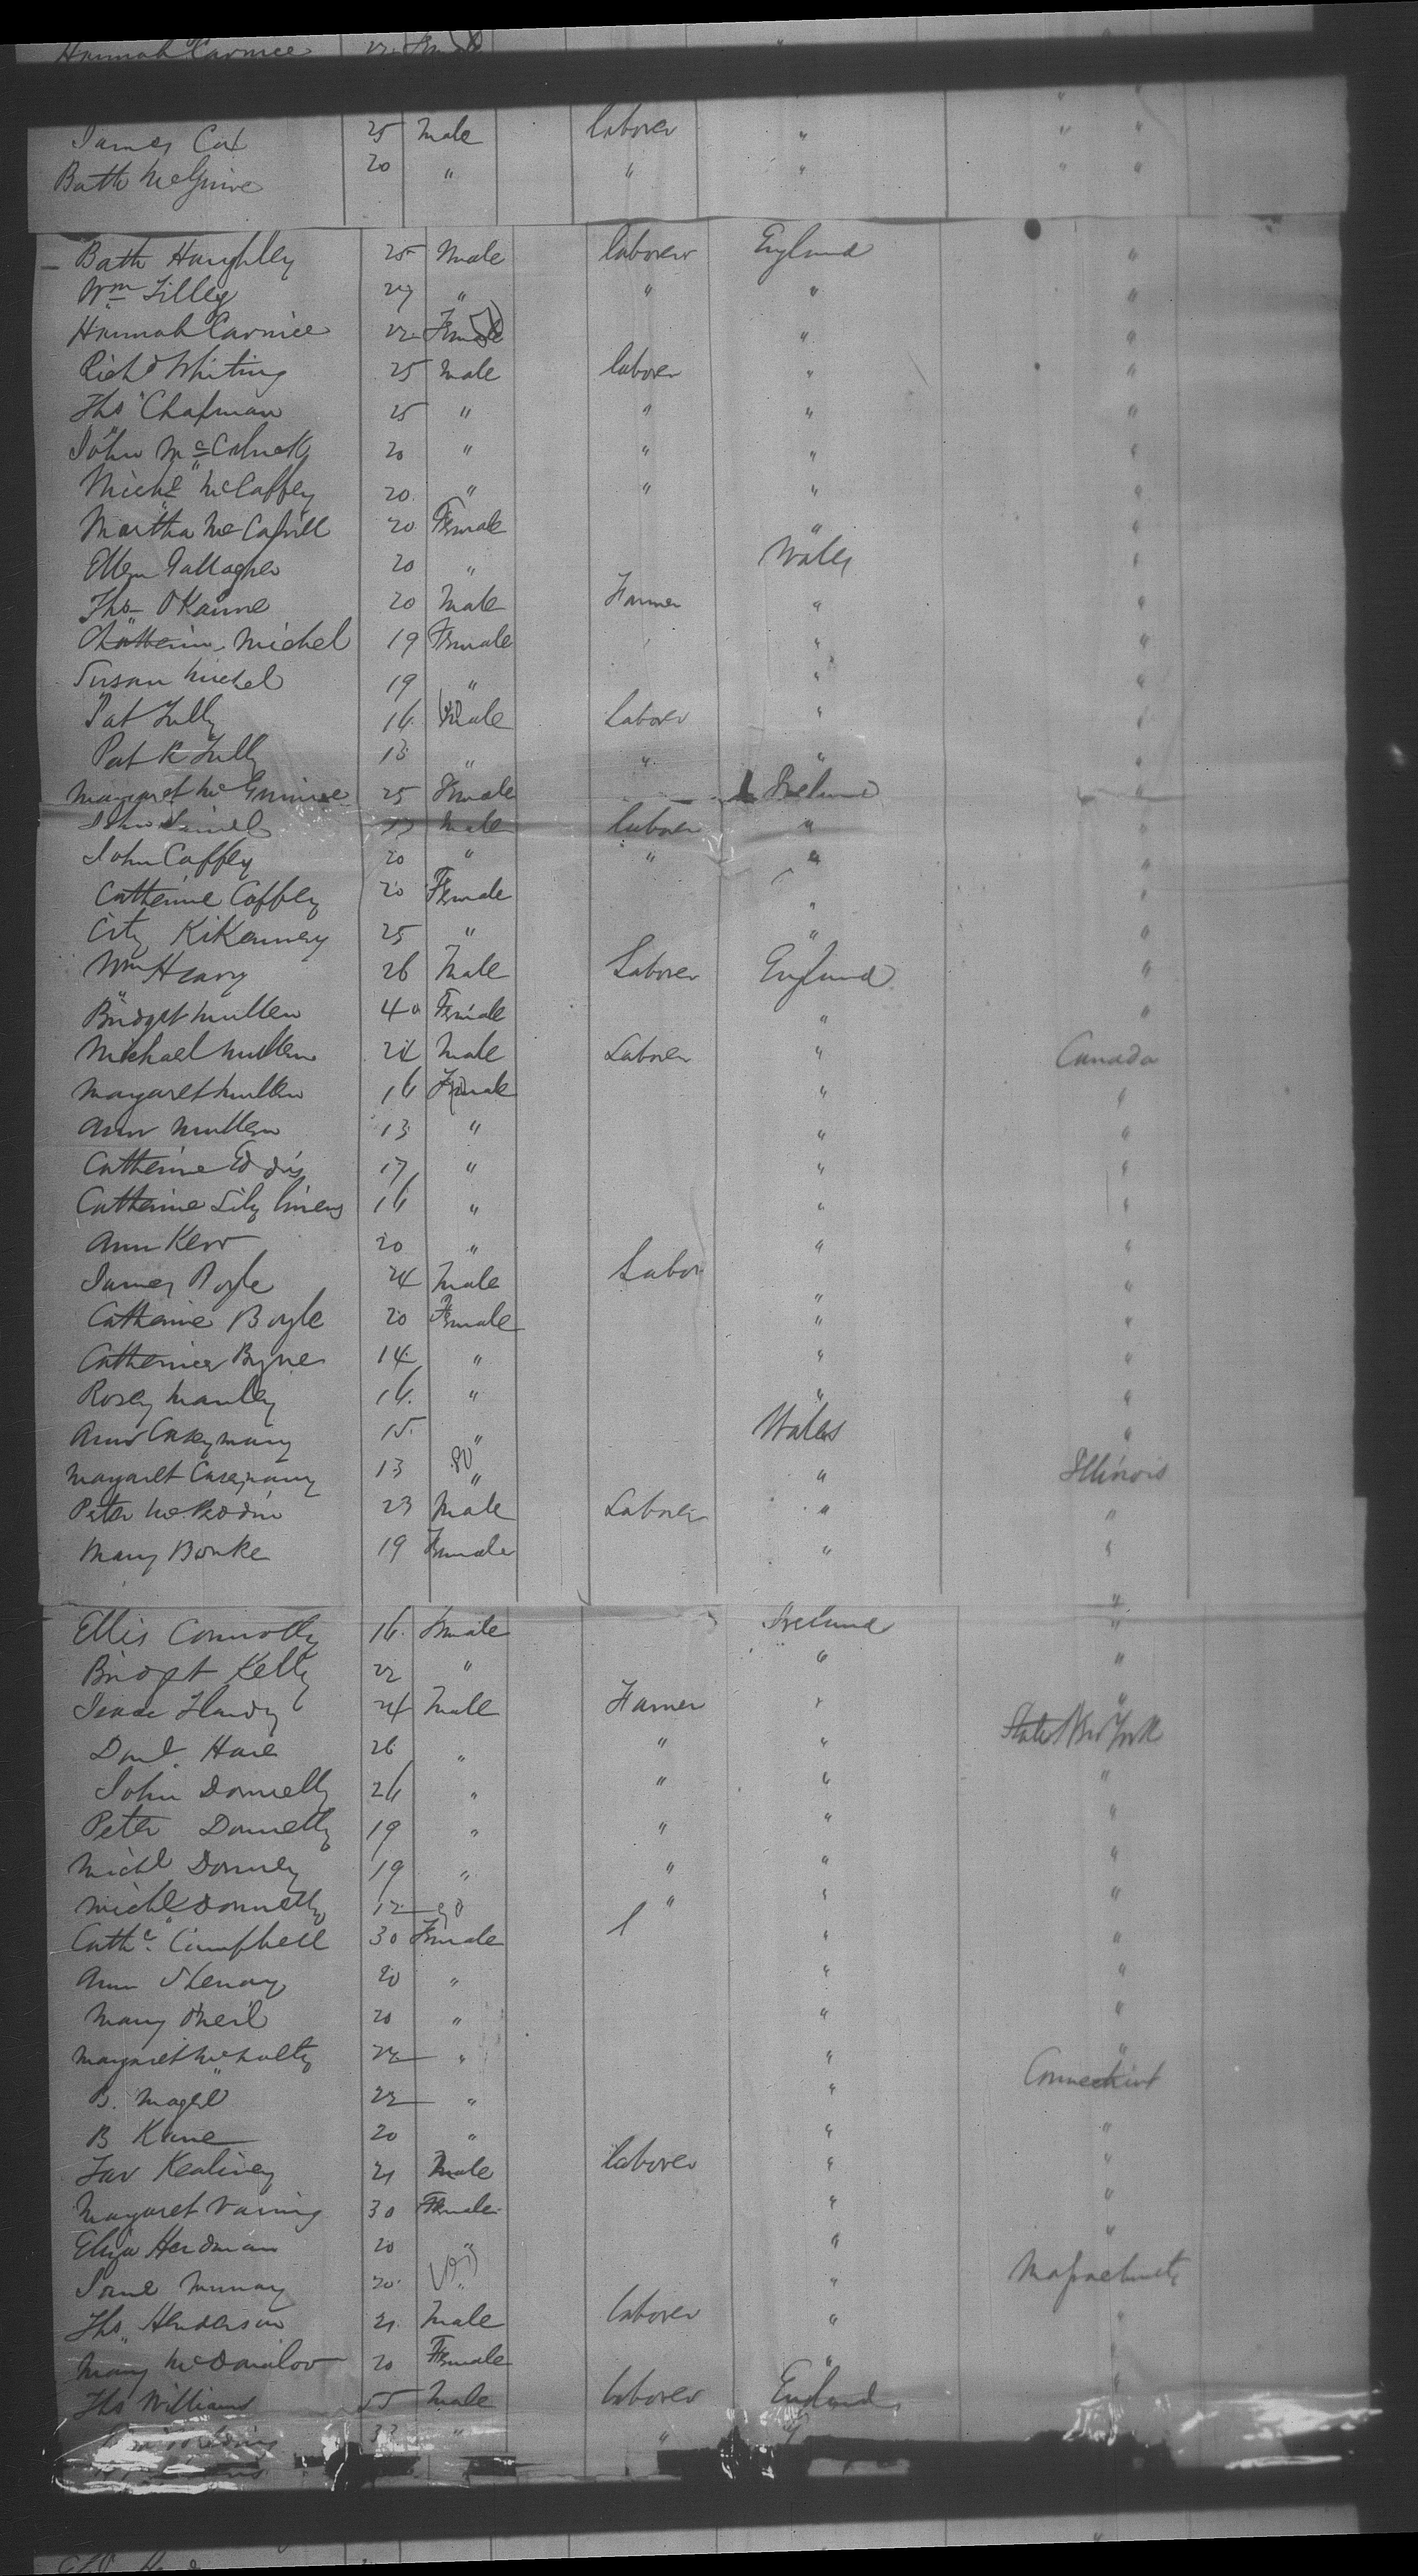 Hannah Carnice 22 Female "
James Cox 25 Male laborer " " "
Bath McGuire 20 " " " " "
Bath Haughley 25 Male laborer England "
Wm Lilley 27 " " " "
Hannah Carnice 22 Female " "
Richd Whiting 25 Male laborer " "
Ths Chapman 25 " " " "
John 20 " " " "
Michl McCaffey 20 " " " "
Martha 20 Female " "
Ellen Gallagher 20 " Wales "
Ths OKanne 20 Male Farmer " "
Michel 19 Female " "
Susan Michel 19 " " "
Pat Tully 16 Male Laborer " "
Patk Tully 13 " " " "
Margaret 25 Female Ireland "
John Male laborer " "
John Caffey 20 " " " "
Catherine Caffey 20 Female " "
City KiKenney 25 " " "
Wm Heary 26 Male Laborer England "
Bridget Mullen 40 Female " "
Michael Mullen 21 Male Laborer " Canada
Margaret Mullen 16 Female " "
Ann Mullen 13 " " "
Catherine Eddis 17 " " "
Catherine 16 " " "
Ann Kerr 20 " " "
James Boyle 24 Male Labor " "
Catherine Boyle 20 Female " "
Catherine Byrne 14 " " "
Rosey Manley 16 " " "
Ann 15 " Wales "
Margaret 13 " " Illinois
Peter 23 Male Laborer " "
Mary Bourke 19 Female " "
"
Ellis Connolly 16 Female Ireland "
Bridget Kelly 22 " " "
Isaac Hardy 24 Male Farmer " "
Danl. Hare 26 " " " State New York
John Donnelly 26 " " " "
Peter Donnelly 19 " " " "
Michl Donnley 19 " " " "
Michl Donnelly 12 " " "
Cathe. Campbell 30 Female " "
Ann 20 " " "
Mary ONeil 20 " " "
Margaret McNulty 22 " " "
B. Magill 22 " " Connecticut
B Kane 20 " " "
Jas Kealiney 21 Male laborer " "
Margaret 30 Female " "
Eliza Herdman 20 " " "
Jane Murray 20 " " Massachusetts
Ths Henderson 21 Male laborer " "
Mary McDonald 20 Female " "
Ths Williams 55 Male laborer England "
33 " " "